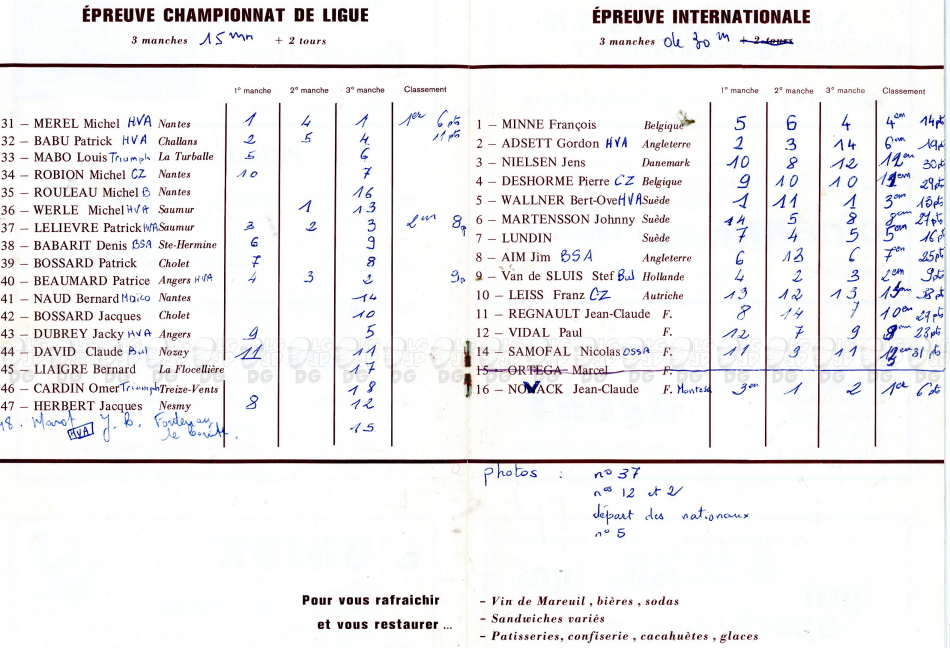 ÉPREUVE CHAMPIONNAT DE LIGUE
3 manches 15 mn + 2 tours
1° manche 2° manche 3° manche Classement
31 – MEREL Michel HVA Nantes 1 4 1 1er 6 pts
32 – BABU Patrick HVA Challans 2 5 4 11 pts
33 – MABO Louis Triumph La Turballe 5 6
34 – ROBION Michel CZ Nantes 10 7
35 – ROULEAU Michel B Nantes 16
36 – WERLE Michel HVA Saumur 1 13
37 – LELIEVRE Patrick HVA Saumur 3 2 3 2em 8p
38 – BABARIT Denis BSA Ste-Hermine 6 9
39 – BOSSARD Patrick Cholet 7 8
40 – BEAUMARD Patrice Angers HVA 4 3 2 9p
41 – NAUD Bernard Maico Nantes 14
42 – BOSSARD Jacques Cholet 10
43 – DUBREY Jacky HVA Angers 9 5
44 – DAVID Claude Bul Nozay 11 11
45 – LIAIGRE Bernard La Flocellière 17
46 – CARDIN Omer Triumph Treize-Vents 18
47 – HERBERT Jacques Nesmy 8 12
48. J. B. Fontenay le 15
HVA
ÉPREUVE INTERNATIONALE
3 manches de 30 m + 2 tours
1° manche 2° manche 3° manche Classement
1 – MINNE François Belgique 5 6 4 4em 14pts
2 – ADSETT Gordon HVA Angleterre 2 3 14 6em 19pts
3 – NIELSEN Jens Danemark 10 8 12 12em 30pts
4 – DESHORME Pierre CZ Belgique 9 10 10 29pts
5 – WALLNER Bert-Ove HVA Suède 1 11 1 3em 13pts
6 – MARTENSSON Johnny Suède 14 5 8 8em 27pts
7 – LUNDIN Suède 7 4 5 5em 16pts
8 – AIM Jim BSA Angleterre 6 13 6 7em 25pts
9 – Van de SLUIS Stef Bul Hollande 4 2 3 2em 9pts
10 – LEISS Franz CZ Autriche 13 12 13 38pts
11 – REGNAULT Jean-Claude F. 8 14 7 10em 29pts
12 – VIDAL Paul F. 12 7 9 28pts
14 – SAMOFAL Nicolas OSSA F. 11 9 11 31pts
15 – ORTEGA Marcel F.
16 – NOVACK Jean-Claude F. Montesa 3em 1 2 1er 6pts
photos : n° 37
nos 12 et 2
départ des nationaux
n° 5
Pour vous rafraichir
et vous restaurer ...
– Vin de Mareuil , bières , sodas
– Sandwiches variés
– Patisseries, confiserie , cacahuètes , glaces